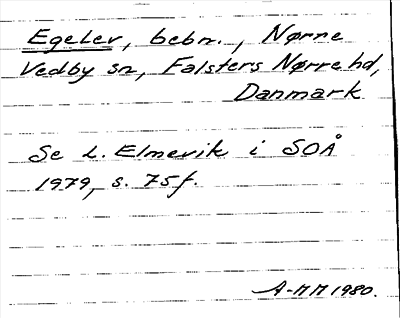 Egelev, bebn., Nørre
Vedby sn, Falsters Nørre hd,
Danmark
Se L. Elmevik i SOÅ
1979, s. 75f.
A-MM 1980.